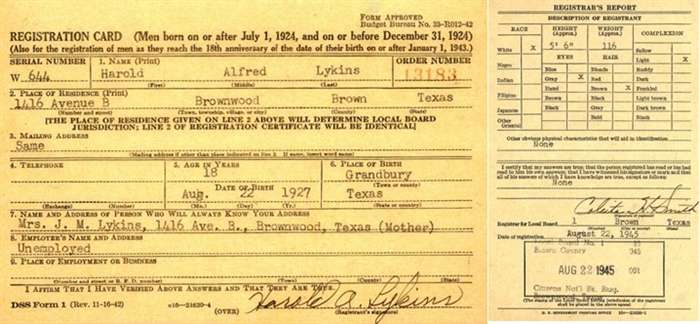 FORM APPROVED
Budget Bureau No. 33-R012-42
REGISTRATION CARD (Men born on or after July 1, 1924, and on or before December 31, 1924)
(Also for the registration of men as they reach the 18th anniversary of the date of their birth on or after January 1, 1943.)
SERIAL NUMBER
1. NAME (Print)
ORDER NUMBER
W 644
Harold Alfred Lykins
13183
(First) (Middle) (Last)
2. PLACE OF RESIDENCE (Print)
1416 Avenue B Brownwood Brown Texas
(Number and street) (Town, township, village, or city) (County) (State)
[THE PLACE OF RESIDENCE GIVEN ON LINE 2 ABOVE WILL DETERMINE LOCAL BOARD
JURISDICTION; LINE 2 OF REGISTRATION CERTIFICATE WILL BE IDENTICAL]
3. MAILING ADDRESS
Same
(Mailing address if other than place indicated on line 2. If same, insert word same)
4. TELEPHONE
5. AGE IN YEARS
6. PLACE OF BIRTH
18
Grandbury
DATE OF BIRTH
(Town or county)
Aug. 22 1927
Texas
(Exchange) (Number)
(Mo.) (Day) (Yr.)
(State or country)
7. NAME AND ADDRESS OF PERSON WHO WILL ALWAYS KNOW YOUR ADDRESS
Mrs. J. M. Lykins, 1416 Ave. B., Brownwood, Texas (Mother)
8. EMPLOYER'S NAME AND ADDRESS
Unemployed
9. PLACE OF EMPLOYMENT OR BUSINESS
(Number and street or R. F. D. number) (Town) (County) (State)
I AFFIRM THAT I HAVE VERIFIED ABOVE ANSWERS AND THAT THEY ARE TRUE.
DSS Form 1 (Rev. 11-16-42)
(OVER)
Harold A. Lykins
(Registrant's signature)
REGISTRAR'S REPORT
DESCRIPTION OF REGISTRANT
RACE
HEIGHT (Approx.)
WEIGHT (Approx.)
COMPLEXION
White X
5' 6"
116
Sallow
EYES
HAIR
Light X
Negro
Blue
Blonde
Ruddy
Indian
Gray X
Red
Dark
Hazel
Brown X
Freckled
Filipino
Brown
Black
Light brown
Japanese
Black
Gray
Dark brown
Other
Oriental
Bald
Black
Other obvious physical characteristics that will aid in identification
None
I certify that my answers are true; that the person registered has read or has had
read to him his own answers; that I have witnessed his signature or mark and that
all of his answers of which I have knowledge are true, except as follows:
None
Registrar for Local Board 1 Brown Texas
Date of registration August 22, 1945
Local Board No. 1
Brown County
AUG 22 1945 001
Citizens Nat'l Bk. Bldg.
(The stamp of the Local Board having jurisdiction of the registrant
shall be placed in the above space)
U. S. GOVERNMENT PRINTING OFFICE